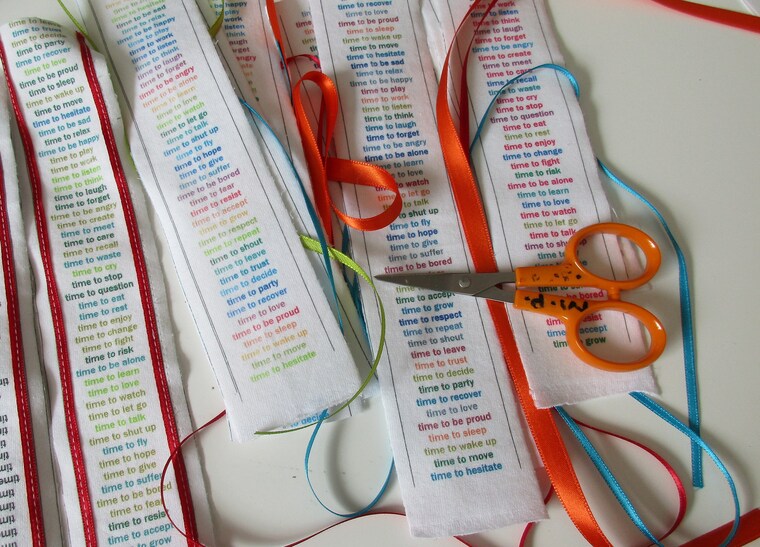 time to party
time to recover
time to love
time to be proud
time to sleep
time to wake up
time to move
time to hesitate
time to be sad
time to relax
time to be happy
time to play
time to work
time to listen
time to think
time to laugh
time to forget
time to be angry
time to create
time to meet
time to care
time to recall
time to waste
time to cry
time to stop
time to question
time to eat
time to rest
time to enjoy
time to change
time to fight
time to risk
time to be alone
time to learn
time to love
time to watch
time to let go
time to talk
time to shut up
time to fly
time to hope
time to give
time to suffer
time to be bored
time to fear
time to resist
time to accept
time to grow
time to be sad
time to relax
time to be happy
time to play
time to work
time to listen
time to think
time to laugh
time to forget
time to be angry
time to be alone
time to learn
time to love
time to watch
time to let go
time to talk
time to shut up
time to fly
time to hope
time to give
time to suffer
time to be bored
time to fear
time to resist
time to accept
time to grow
time to respect
time to repeat
time to shout
time to leave
time to trust
time to decide
time to party
time to recover
time to love
time to be proud
time to sleep
time to wake up
time to move
time to hesitate
to decide
time to recover
time to love
time to be proud
time to sleep
time to wake up
time to move
time to hesitate
time to be sad
time to relax
time to be happy
time to play
time to work
time to listen
time to think
time to laugh
time to forget
time to be angry
time to be alone
time to learn
to love
to watch
to let go
time to talk
time to shut up
time to fly
time to hope
time to give
time to suffer
time to be bored
time to accept
time to grow
time to respect
time to repeat
time to shout
time to leave
time to trust
time to decide
time to party
time to recover
time to love
time to be proud
time to sleep
time to wake up
time to move
time to hesitate
time to work
time to listen
time to think
time to laugh
time to forget
time to be angry
time to create
time to meet
time to care
time to recall
time to waste
time to cry
time to stop
time to question
time to eat
time to rest
time to enjoy
time to change
time to fight
time to risk
time to be alone
time to learn
time to love
time to watch
time to let go
time to talk
time to shut
bored
resist
time to accept
time to grow
N.P.